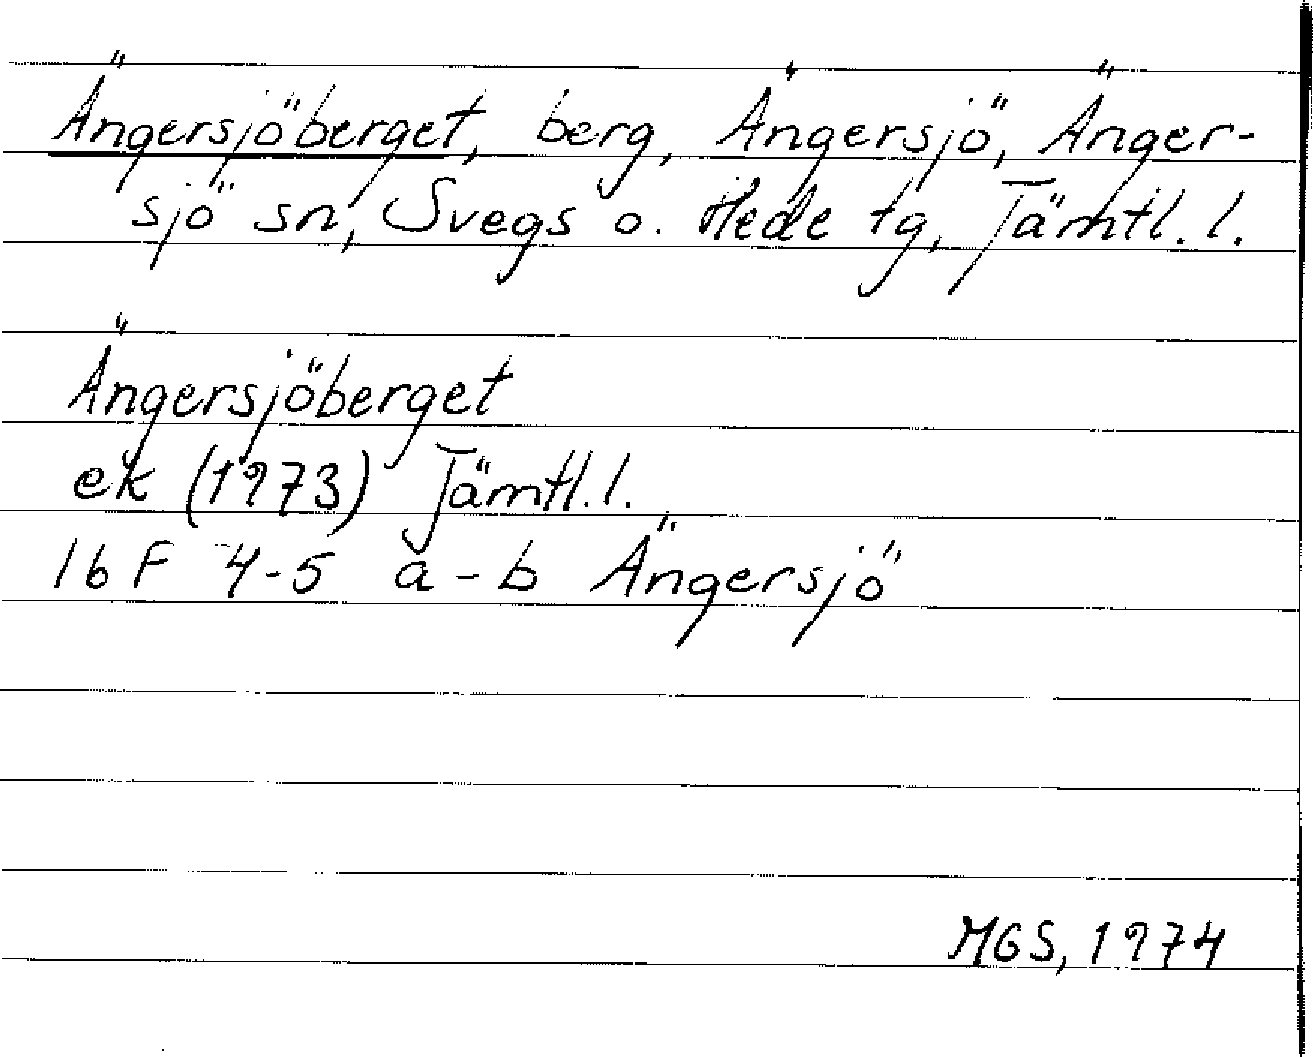 Ängersjöberget, berg, Ängersjö, Änger-
sjö sn, Svegs o. Hede tg, Jämtl. l.
Ängersjöberget
ek (1973) Jämtl. l.
16 F 4-5 a-b Ängersjö
MGS, 1974